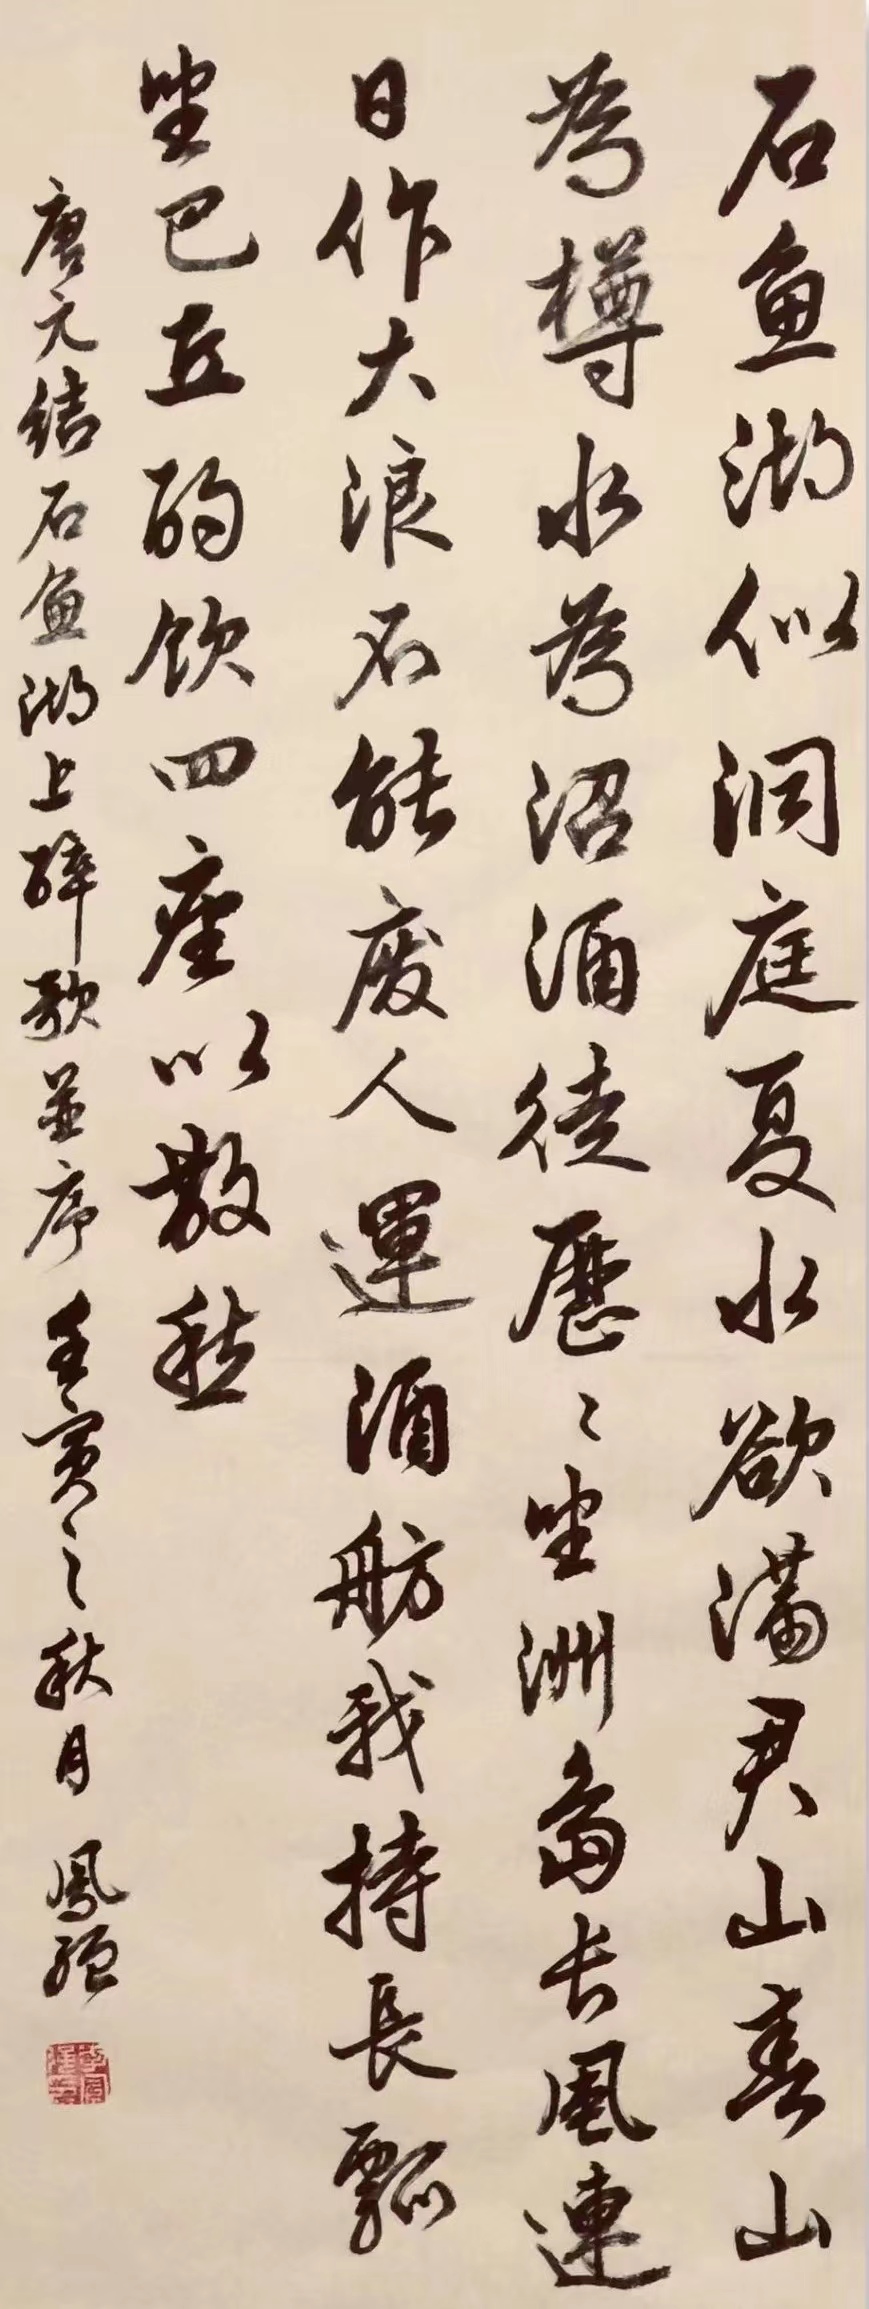 石魚湖似洞庭夏水欲滿君山青山
為樽水為沼酒徒歷々坐洲島長風連
日作大浪不能廢人運酒舫我持長瓢
坐巴丘酌飲四座以散愁
唐元結石魚湖上醉歌並序 壬寅之秋月 鳳強